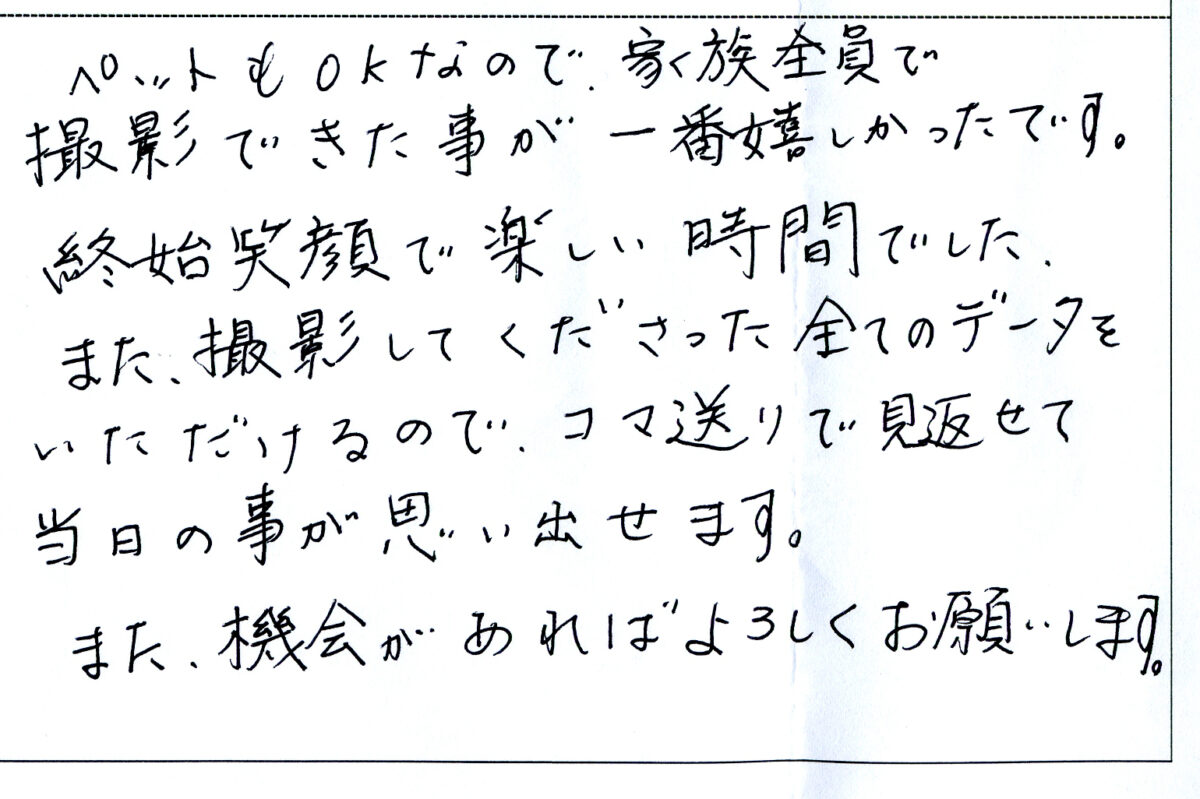 ペットもOKなので、家族全員で
撮影できた事が一番嬉しかったです。
終始笑顔で楽しい時間でした、
また、撮影してくださった全てのデータを
いただけるので、コマ送りで見返せて
当日の事が思い出せます。
また、機会があればよろしくお願いします。